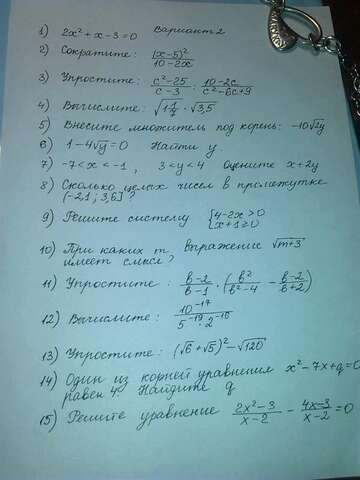 1) 2x² + x - 3 = 0 Вариант 2
2) Сократите: (x-5)²/(10-2x)
3) Упростите: (c²-25)/(c-3) · (10-2c)/(c²-6c+9)
4) Вычислите: √(1 1/7) · √3,5
5) Внесите множитель под корень: -10√2y
6) 1-4√y = 0 Найти y
7) -7 < x < -1, 3 < y < 4 Оцените x+2y
8) Сколько целых чисел в промежутке
(-2,1; 3,6]?
9) Решите систему {4-2x>0
{x+1≥0
10) При каких m выражение √(m+3)
имеет смысл?
11) Упростите: (b-2)/(b-1) · (b²/(b²-4) - (b-2)/(b+2))
12) Вычислите: 10⁻¹⁷/(5⁻¹⁹·2⁻¹⁶)
13) Упростите: (√6+√5)² - √120
14) Один из корней уравнения x²-7x+q=0
равен 4. Найдите q
15) Решите уравнение (2x²-3)/(x-2) - (4x-3)/(x-2) = 0